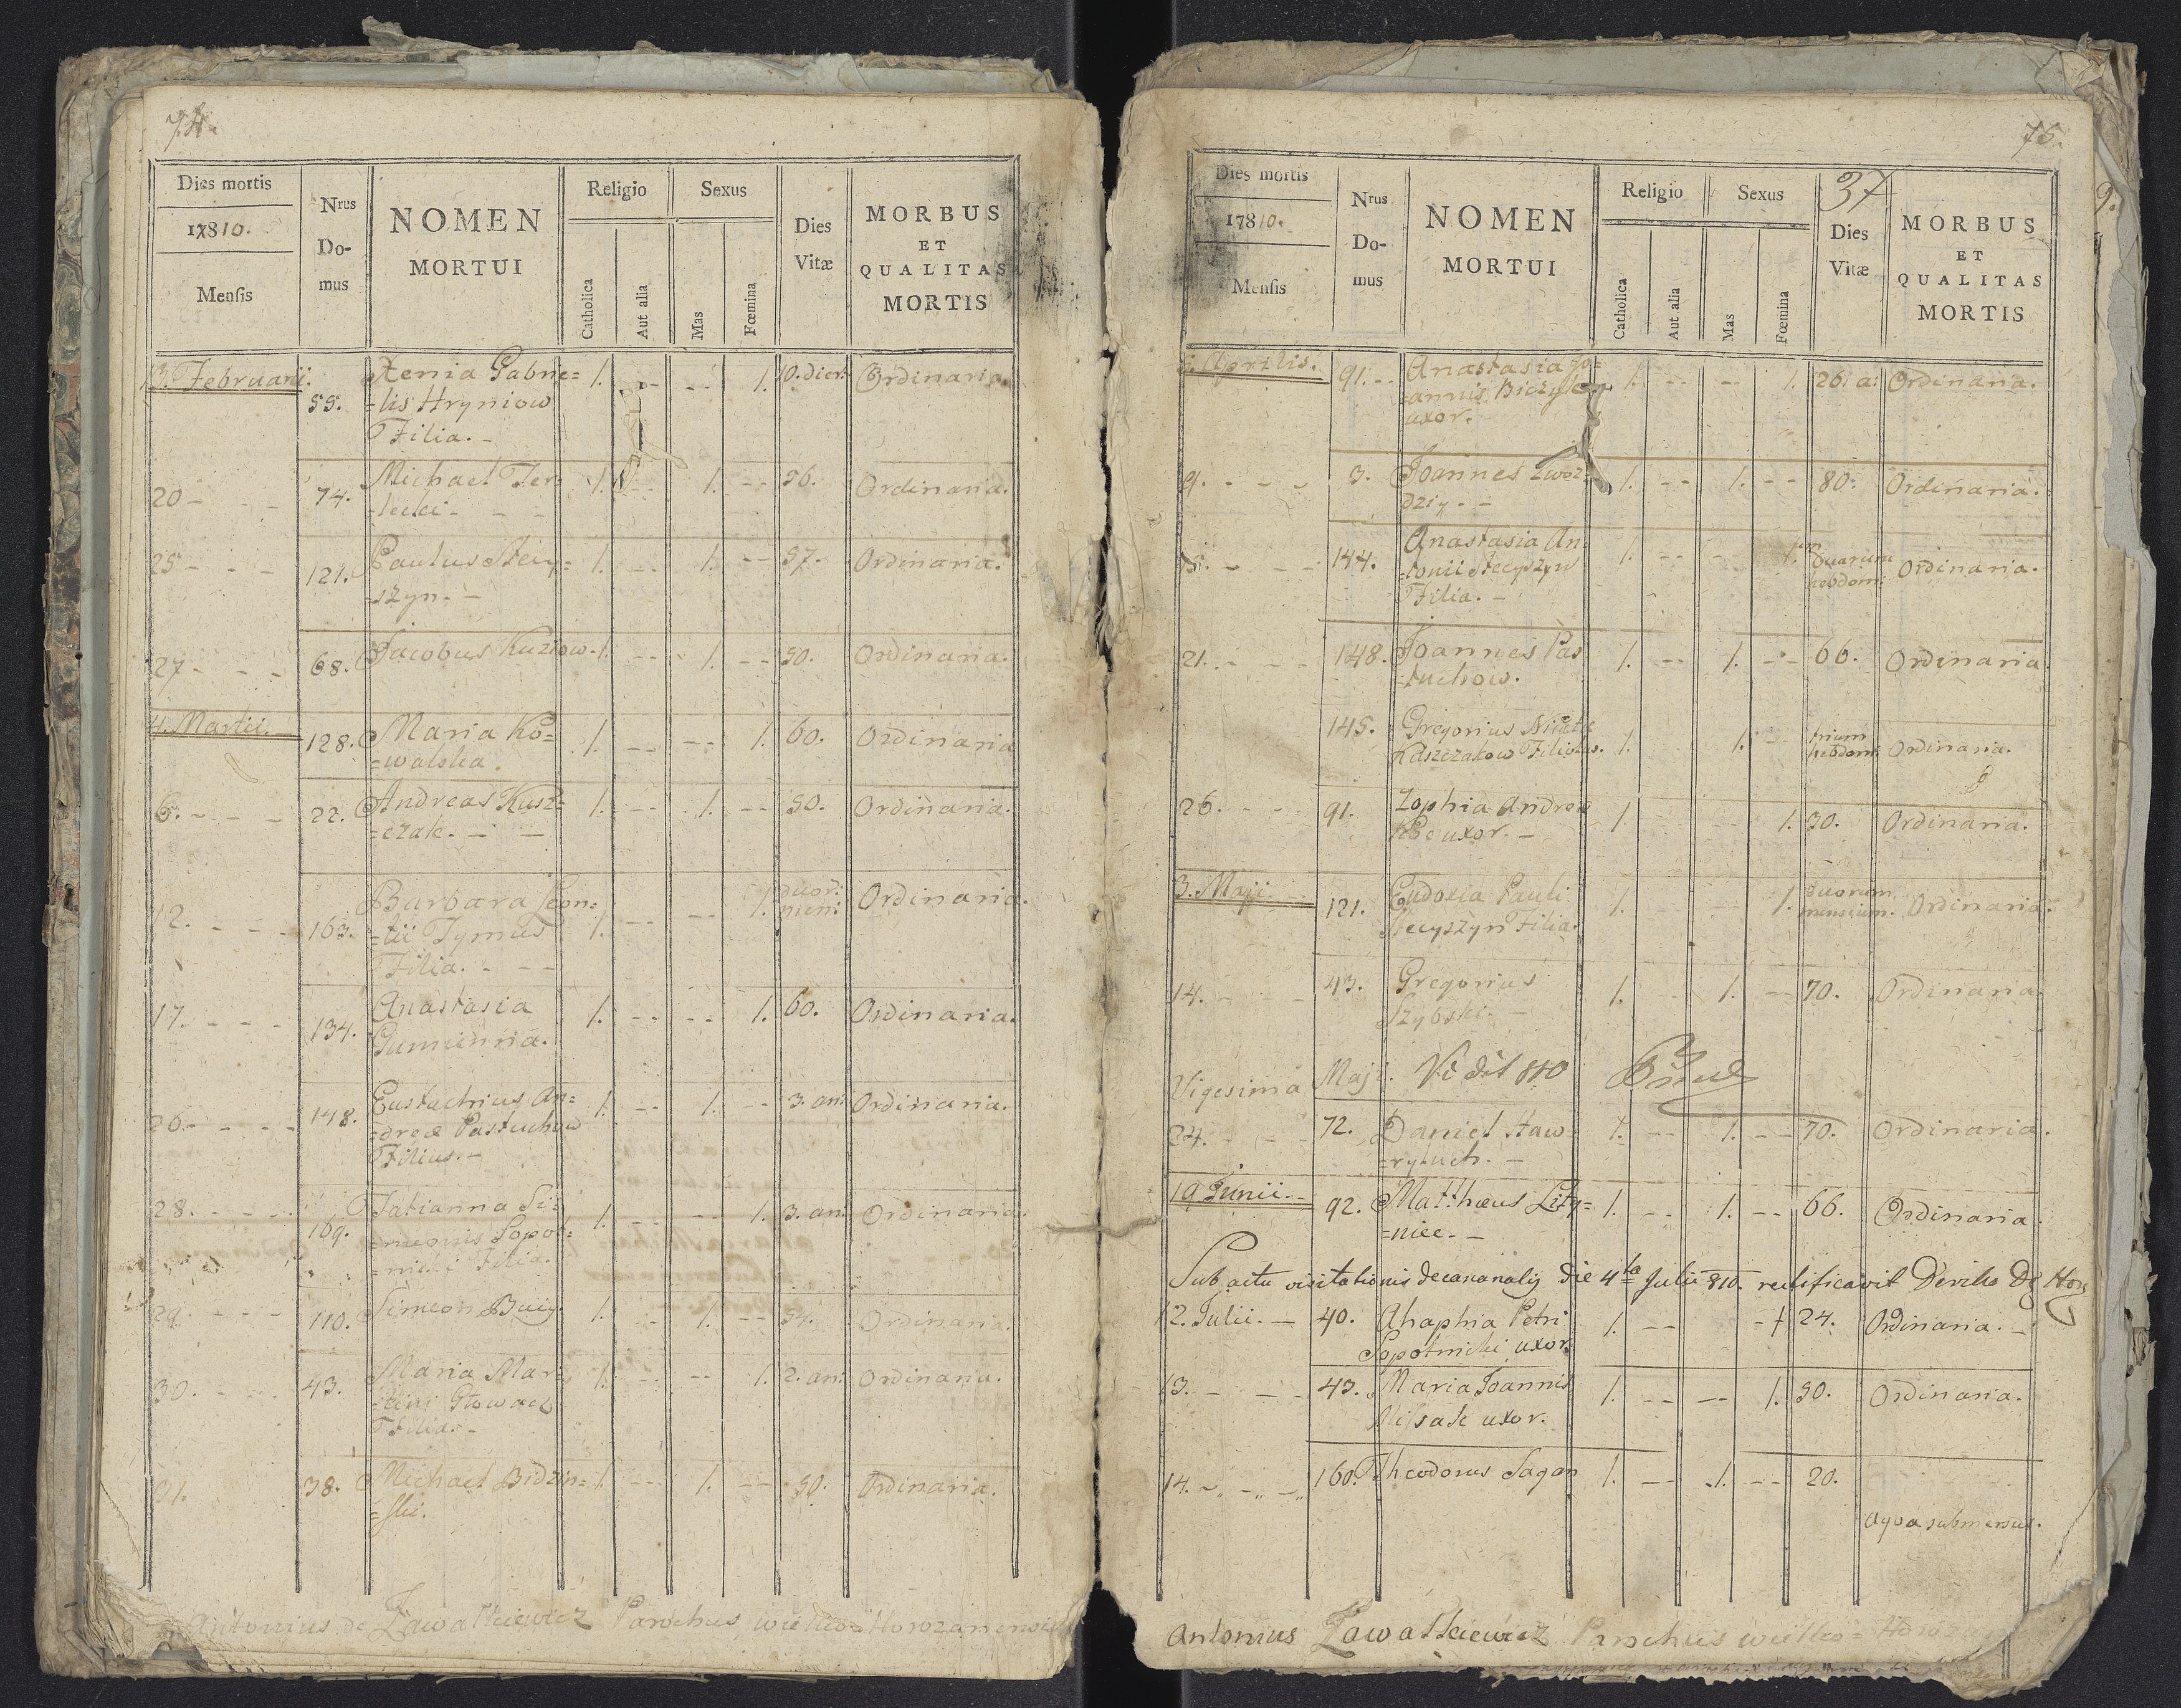 74.
Dies mortis
17810.
Mensis
Nrus
Do-
mus
NOMEN
MORTUI
Religio
Catholica
Aut alia
Sexus
Mas
Fœmina
Dies
Vitæ
MORBUS
ET
QUALITAS
MORTIS
13. Februarii.
55.
Xenia Gabrie=
=lis Hryniow
Filia. -
1. -- -- 1. 10. dier: Ordinaria.
20 - - - 74. Michael Ter=
=lecki - - -
1. -- 1. -- 56. Ordinaria.
25 - - - 121. Paulus Stecy=
=szyn. -
1. -- 1. -- 57. Ordinaria.
27 - - - 68. Jacobus Kuziow. 1. -- 1. -- 50. Ordinaria.
4. Martii. 128. Maria Ko=
=walska.
1. -- -- 1. 60. Ordinaria
6. - - - 22. Andreas Kusz=
=czak. - -
1. -- 1. -- 50. Ordinaria.
12. - - - 163. Barbara Leon=
=tii Tymus
Filia. - - -
1. -- -- 1. duor:
men: Ordinaria.
17. - - - 134. Anastasia
Gumienna.
1. -- -- 1. 60. Ordinaria.
26. - - - 148. Eustachius An=
=dreæ Pastuchow
Filius. -
1. -- 1. -- 3. an: Ordinaria.
28. - - - 169. Tatianna Si=
=meonis Sopot=
=nicki Filia.
1. -- -- 1. 3. an: Ordinaria.
29. - - - 110. Simeon
1. -- 1. -- 54. Ordinaria.
30. - - - 43. Maria Mar=
=tini Głowacz
Filia. -
1. -- -- 1. 2. an: Ordinaria.
31. 38. Michael Bidzin=
=ski.
1. -- 1. -- 50. Ordinaria.
Antonius de Zawałkiewicz Parochus
75.
37
9.
Dies mortis
17810.
Mensis
Nrus
Do-
mus
NOMEN
MORTUI
Religio
Catholica
Aut alia
Sexus
Mas
Fœmina
Dies
Vitæ
MORBUS
ET
QUALITAS
MORTIS
Aprilis. 91. -- Anastasia Jo=
=annis
uxor. -
1. -- -- 1. 26. a: Ordinaria.
9. - - - 3. Joannes Zwoz=
dziy. - -
1. -- 1. -- 80. Ordinaria.
144. Anastasia An=
=tonii Stecyszyn
Filia. -
1. -- - 1. Duarum
hebdom: Ordinaria.
21. - - - 148. Joannes Pas
=tuchow.
1. -- 1. -- 66. Ordinaria.
145. Gregorius
Filius.
1. 1. - trium
hebdom: Ordinaria.
26. - - - 91. Zophia Andreæ
uxor. -
1. 1. 30. Ordinaria.
3. Maji 121. Eudoxia Pauli
Stecyszyn Filia.
1. 1. duorum
mensium. Ordinaria.
14. - - - 43. Gregorius
Szybski. -
1. - 1. -- 70. Ordinaria.
Vigesima Maji. Vidit 810
24. - - - 72. Daniel Haw=
=ryluch. -
1. -- 1. -- 70. Ordinaria.
19 Junii. - 92. Matthæus Lity=
=niec. -
1. -- 1. -- 66. Ordinaria.
Sub actu visitationis decananalis die 4ta Julii 810. rectificavit
12. Julii. - 40. Ahaphia Petri
Sopotnicki uxor.
1. -- - 1 24. Ordinaria. -
13. - - - 43. Maria Joannis
uxor.
1. -- -- 1. 50. Ordinaria.
14. - - - 160. Theodorus Sagan 1. -- 1. -- 20.
aqua submersus.
Antonius Zawałkiewicz Parochus